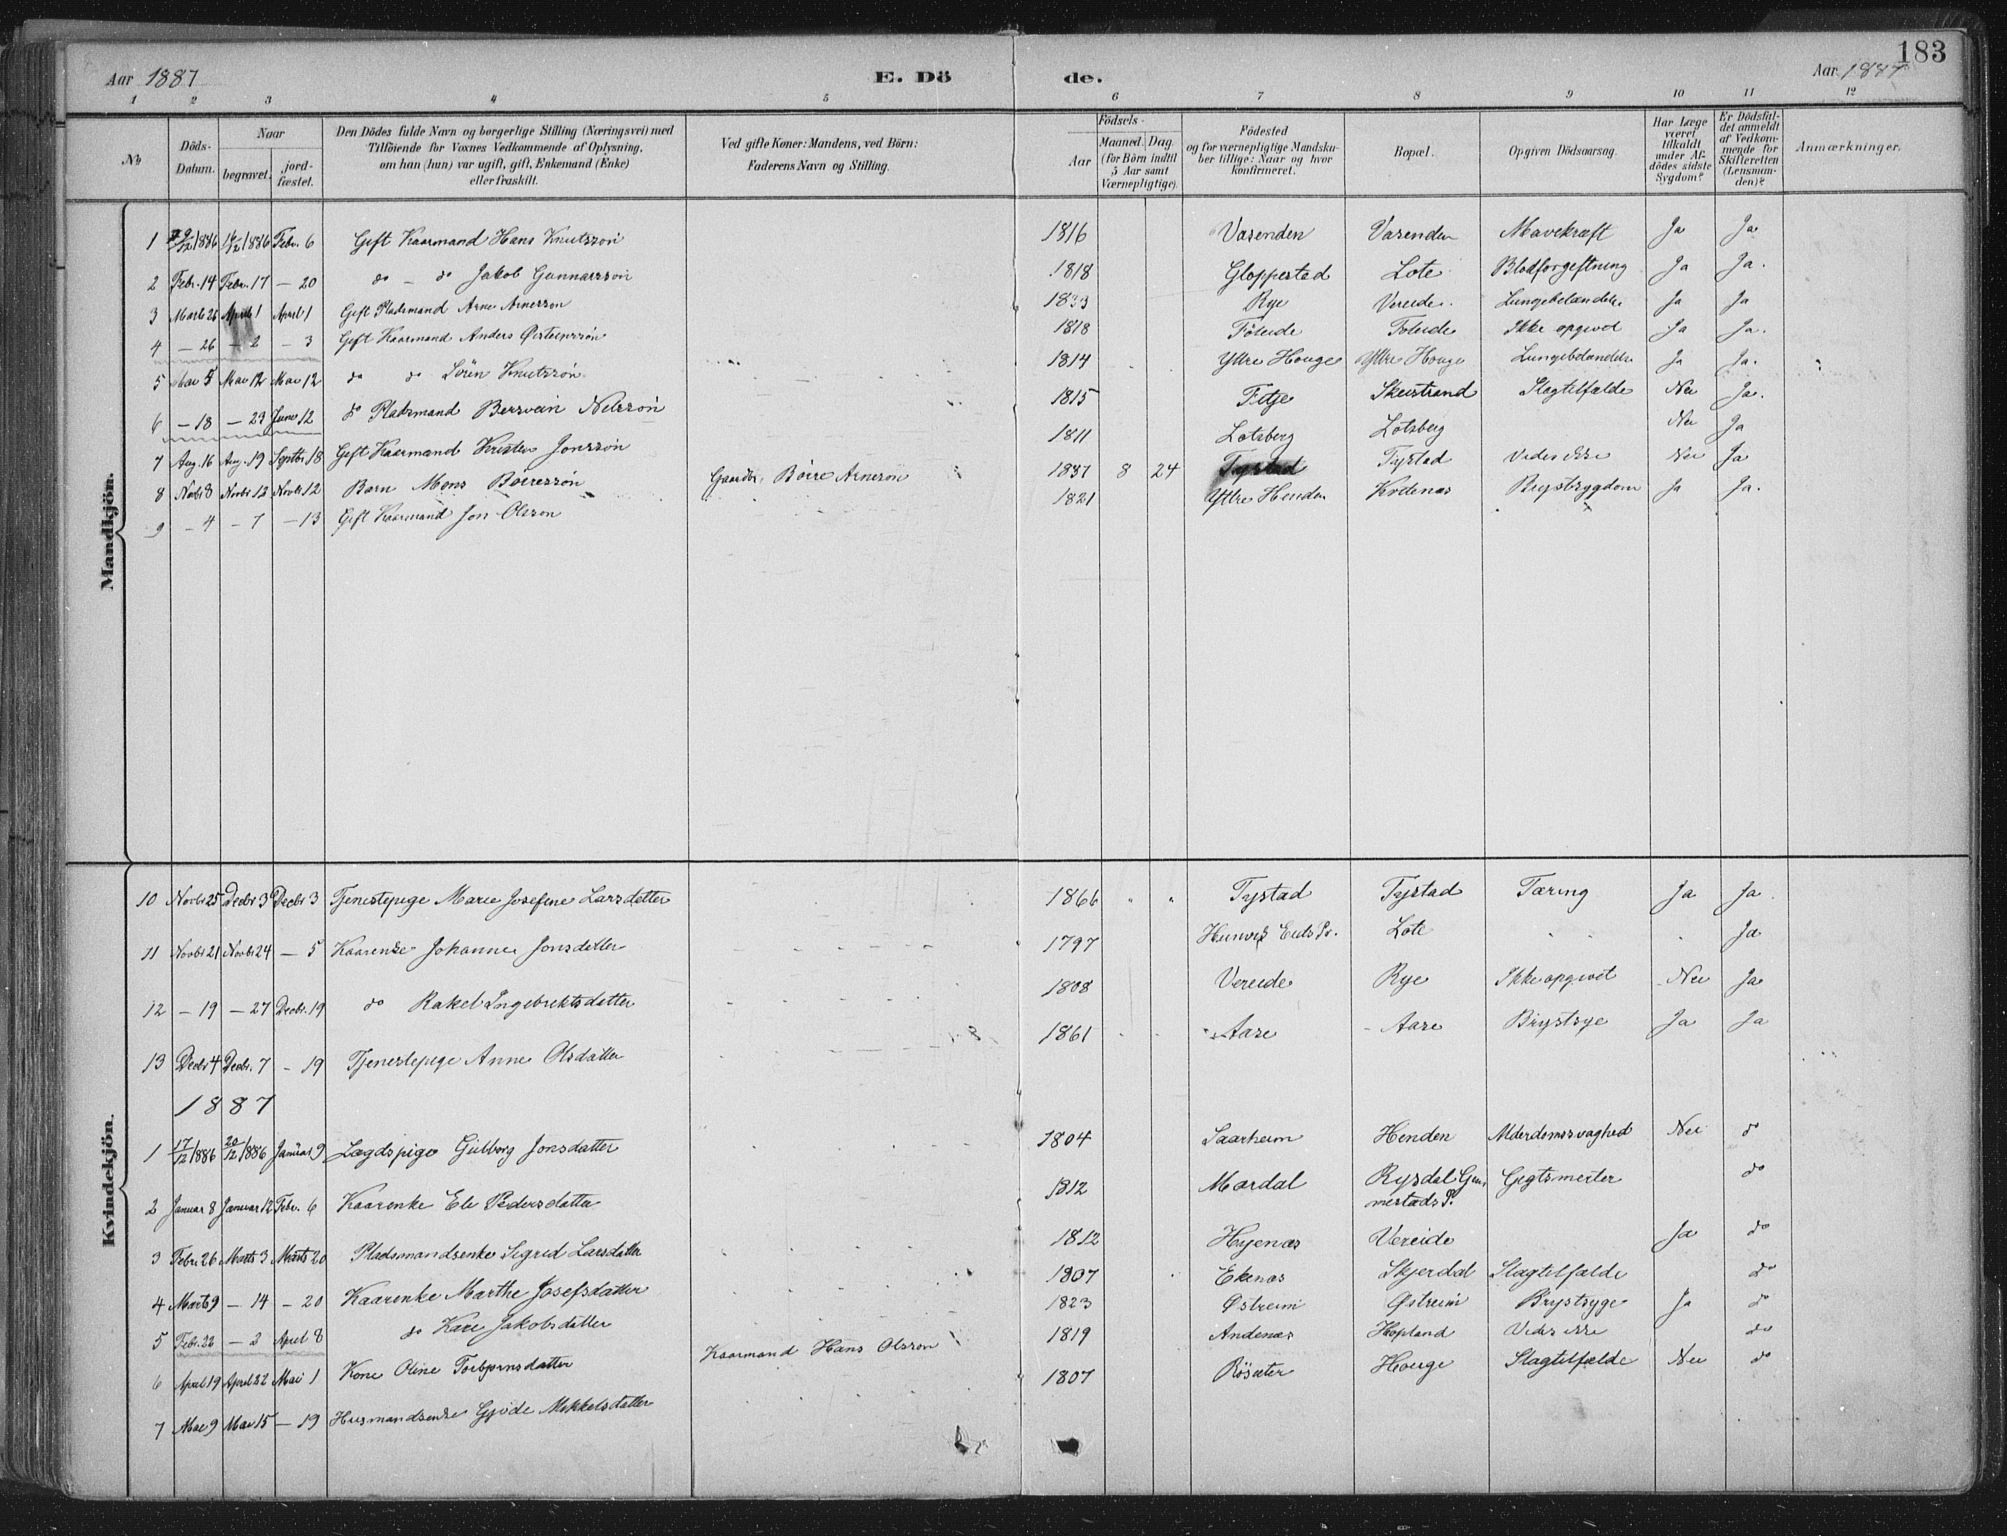 183
Aar 1887 E. Dö de. Aar 1887
1 2 3 4 5 6 7 8 9 10 11 12
No
Döds-Datum.
Naar
begravet.
jordfæstet.
Den Dödes fulde Navn og borgerlige Stilling (Næringsvei) med Tilföiende for Voxnes Vedkommende af Oplysning, om han (hun) var ugift, gift, Enkemand (Enke) eller fraskilt.
Ved gifte Koner: Mandens, ved Börn: Faderens Navn og Stilling.
Födsels-
Aar
Maaned. Dag.
(for Börn indtil 5 Aar samt Værnepligtige).
Födested
og for værnepligtige Mandskaber tillige: Naar og hvor konfirmeret.
Bopæl.
Opgiven Dödsaarsag.
Har Læge været tilkaldt under Afdödes sidste Sygdom?
Er Dödsfaldet anmeldt af Vedkommende for Skifteretten (Lensmanden)?
Anmærkninger.
Mandkjön.
1 9/12/1886 16/12/1886 Febr. 6 Gift Kaarmand Hans Knutssön 1816 Vasenden Vasenden Mavekræft Ja Ja
2 Febr. 14 Febr. 17 – 20 do – do Jakob Gunnarssön 1818 Gloppestad Lote Blodforgiftning Ja Ja.
3 Marts 26 April 1 April 1 Gift Pladsmand Arne Arnessön 1833 Rye Vereide. Lungebetændelse Ja Ja
4 – 26 – 2 – 3 Gift Kaarmand Anders 1818 Föleide Föleide Ikke opgivet Ja Ja.
5 Mai 5 Mai 12 Mai 12 do do Sörin Knutssön 1814 Ytre Houge Ytre Houge Lungebetændelse Ja Ja.
6 – 18 – 29 Juni 12 do Pladsmand Bersvein Nilssön 1815 Fitje Skeistrand Slagtilfælde Nei Ja.
7 Aug. 16 Aug. 19 Septbr 18 Gift Kaarmand Kristen Jonssön 1811 Lotsberg Lotsberg Nei Ja
8 Novbr 8 Novbr 12 Novbr 12 Barn Mons Böiressön Gaardbr. Böire Arnesön 8 24 Tystad Tystad Vides ikke Nei Ja
9 – 4 – 7 – 13 Gift Kaarmand Jon Olsson 1821 Ytre Henden Kvitenæs Brystsygdom Ja Ja.
Kvindekjön.
10 Novbr 25 Decbr 3 Decbr 3 Tjenestepige Marie Josefine Larsdatter 1866 Tystad Tystad Tæring Ja Ja.
11 Novbr 21 Novbr 24 – 5 Kaarenke Johanne Jonsdatter 1797 Eids Pr. Lote Ja
12 – 19 – 27 Decbr. 19 do Rakel Ingebrektsdatter 1808 Vereide Rye Ikke opgivet Nei Ja
13 Decbr 4 Decbr. 7 – 19 Tjenestepige Anne Olsdatter 1861 Aase Aase Brystsyge Ja Ja
1887
1 17/12/1886 20/12/1886 Januar 9 Lægdspige Gulborg Jonsdatter 1804 Saarheim Henden Alderdomssvaghed Nei do
2 Januar 8 Januar 12 Febr. 6 Kaarenke Eli Pedersdatter 1812 Mardal Rysdal Gimmestads P. Gigtsmerter do
3 Febr. 26 Marts 3 Marts 20 Pladsmandsenke Sigrid Larsdatter 1812 Hyenæs Vereide Ja do
4 Marts 9 – 14 – 20 Kaarenke Marthe Josefsdatter 1807 Ekenæs Skjerdal Slagtilfælde do
5 Febr. 22 – 2 April 8 do Kari Jakobsdatter 1823 Østreim Østreim Brystsyge Ja do
6 April 19 April 22 Mai 1 Kone Oline Torbjørnsdatter Kaarmand Hans Olsson 1819 Andenæs Hopland Vides ikke do
7 Mai 9 Mai 15 – 19 Husmandsenke Gjöde Mikkelsdatter 1807 Rösæter Houge Slagtilfælde Nei do